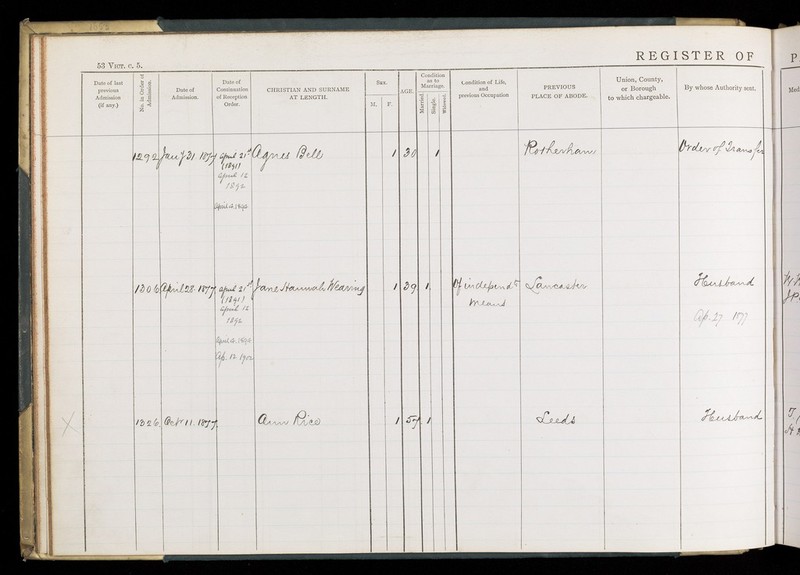 53 VICT. c. 5.
REGISTER OF P
Date of last previous Admission (if any.)
No. in Order of Admission.
Date of Admission.
Date of Continuation of Reception Order.
CHRISTIAN AND SURNAME AT LENGTH.
Sex.
M. F.
AGE.
Condition as to Marriage.
Married. Single. Widowed.
Condition of Life, and previous Occupation
PREVIOUS PLACE OF ABODE.
Union, County, or Borough to which chargeable.
By whose Authority sent.
Med
1292 Jany 31 1877 April 21st Agnes Bell 1 30 1 Rotherham Order of Transfer
(1891)
April 12
1892
1306 April 28. 1877 April 21st Jane Hannah Wearing 1 39 1 Of independt Lancaster Husband
(1891) means
April 12
1892
Ap. 27 1877
Ap. 12. 1902
X 1326 Octr 11. 1877 Ann Rice 1 57 1 Leeds Husband